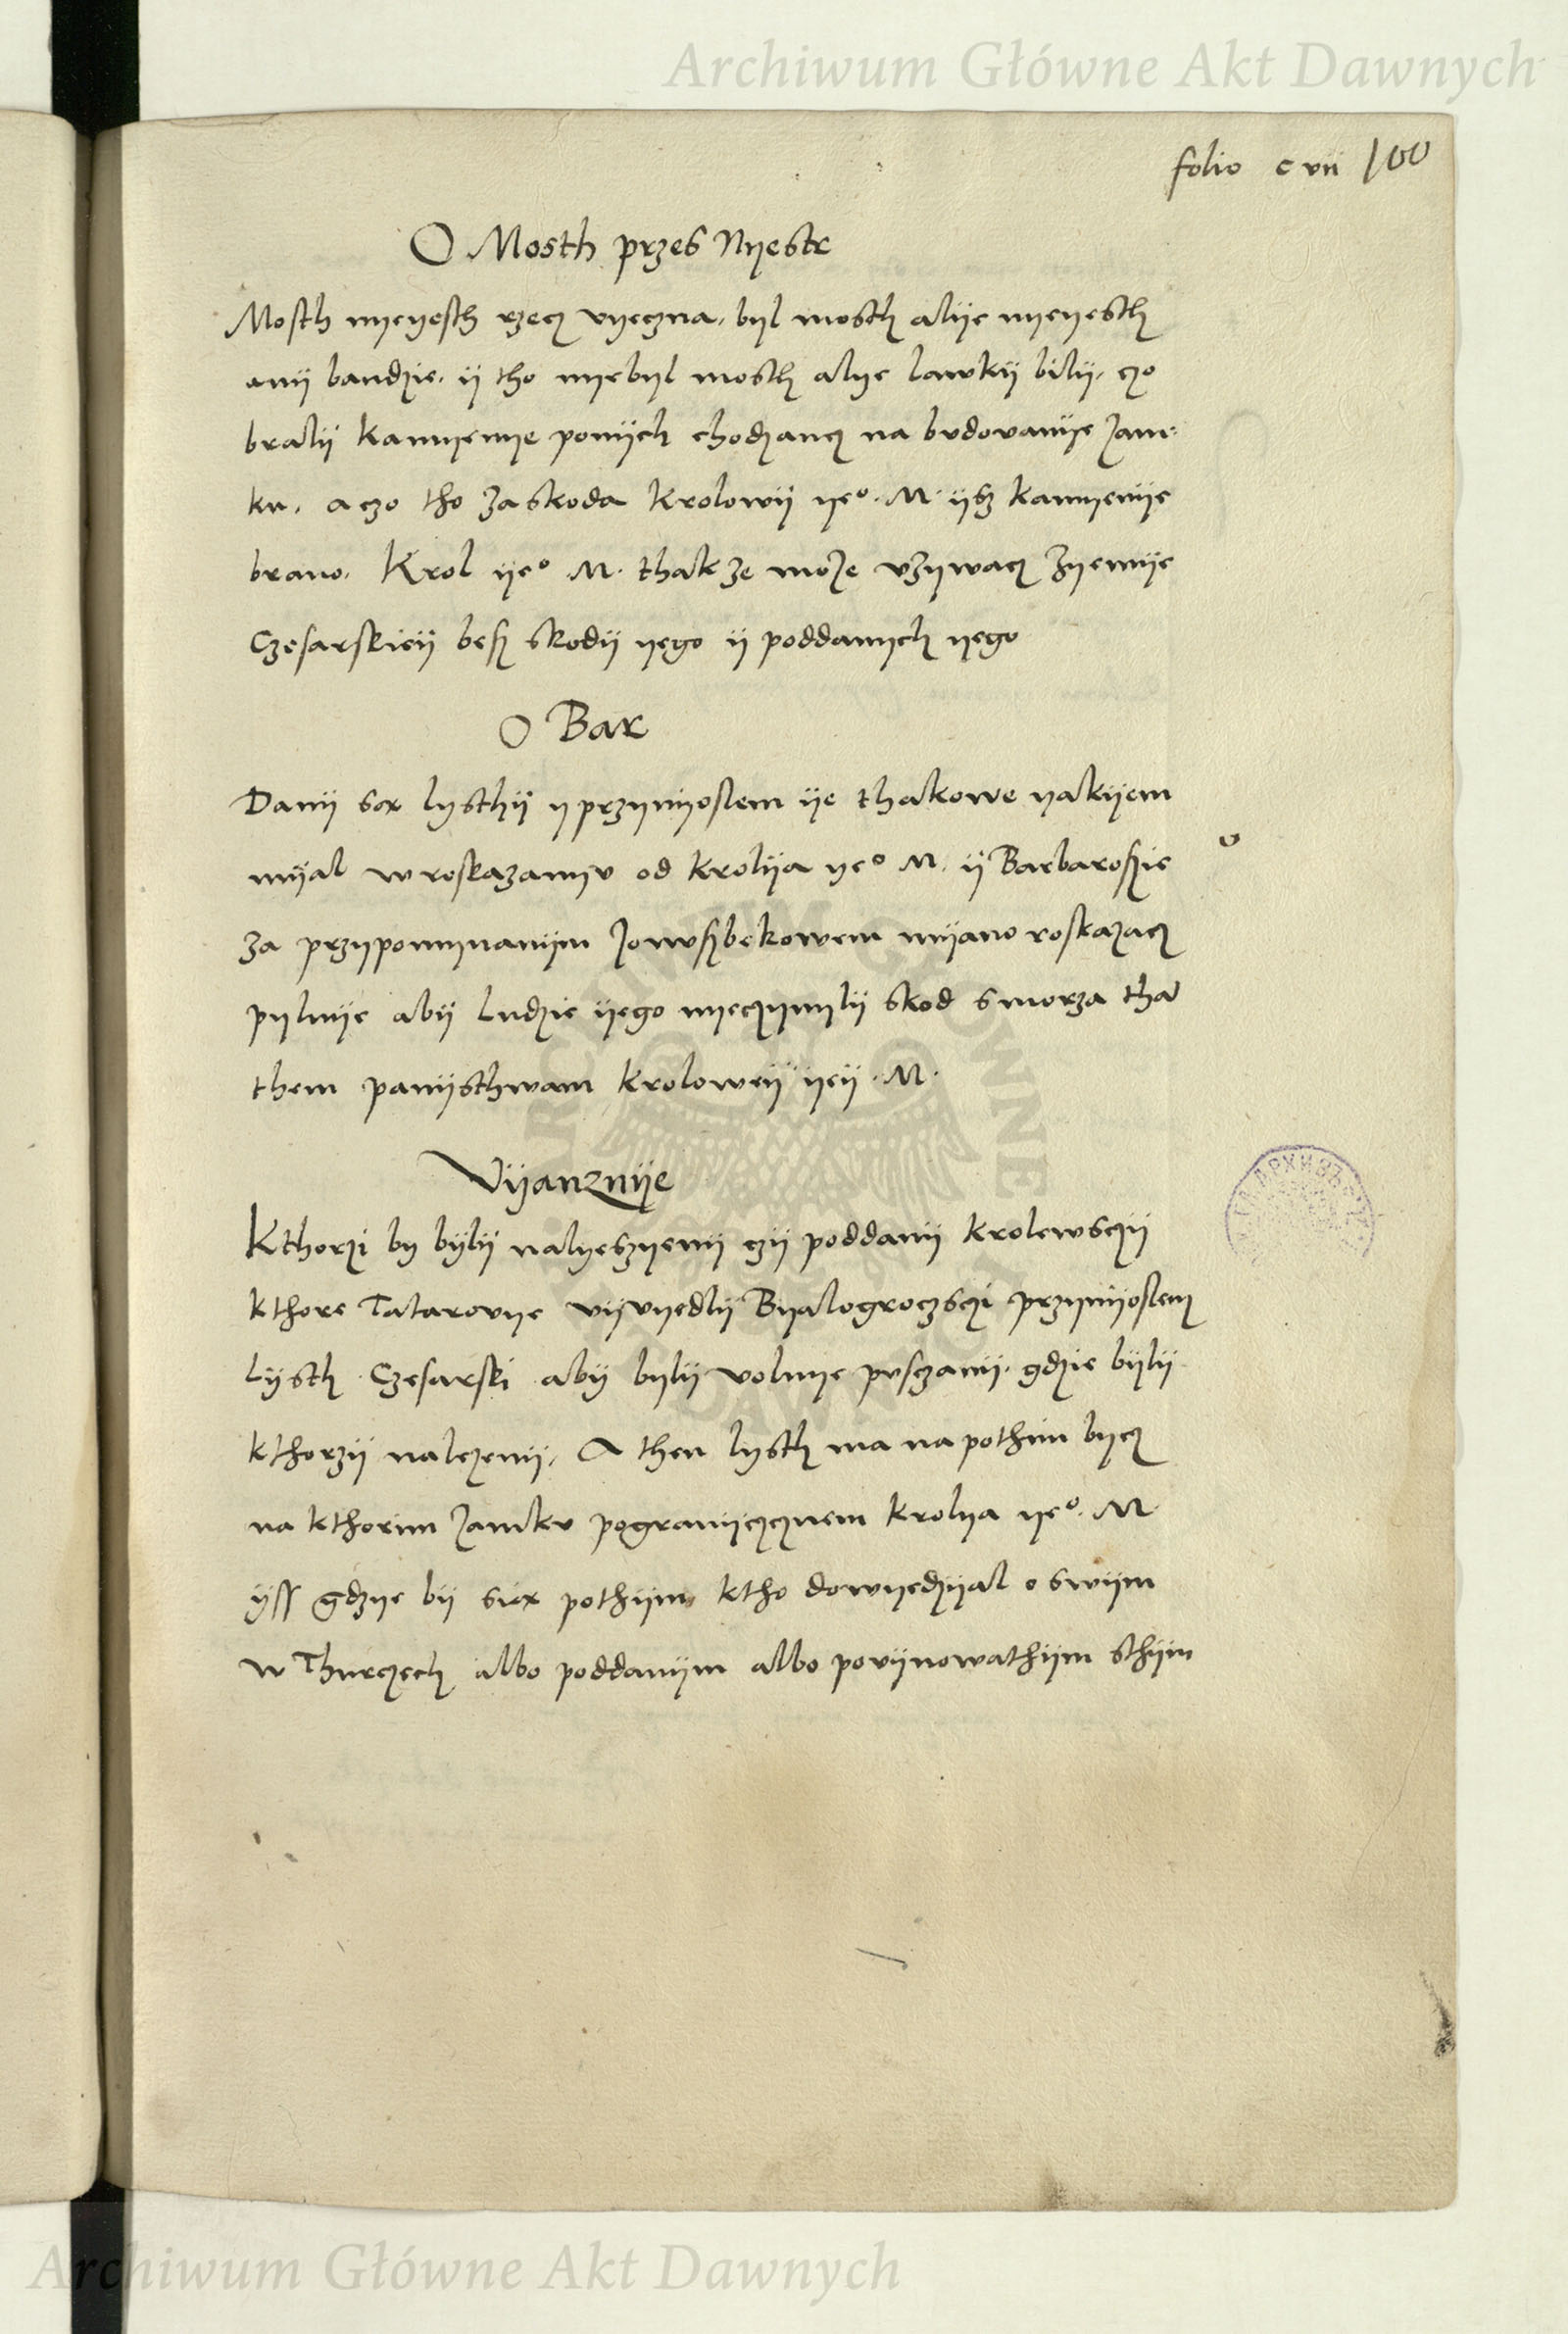 Archiwum Główne Akt Dawnych
folio c vii 100
O Mosth przes Nyestr
Mosth nyeyesth rzecz vyeczna, byl mosth alije nyeyesth
anij bandzie, ij tho nyebyl mosth alye lawkij bilij, czo
bralij kamyenye ponijch chodzancz na budovanije zam-
ku, aczo tho za skoda krolowij yeo M. ijsz kamyenije
brano. Krol ijeo M. thakze może vzywacz zyemije
Czesarskieij besz skodij yego ij poddanych yego
O Bar
Danij sox lysthij y przynijoslem ije thakowe yakijem
mijal w roskazanyv od krolija yeo M. ij Barbarossie
za przypomynanijm Jonuszbekowem mijano roskazacz
pylnije abij ludzie ijego nyeczynylij skod s morza tha
them panijsthwam kroloweij ijeij M.
Vijanznije
Kthorzi by bijlij nalyeszyenij czij poddanij krolewsczij
kthore Tatarovye vijvyedlij Byalogroczsczi przynijoslem
lijsth Czesarski abij bylij volnye pusczanij, gdzie bijlij
kthorzij nalezenij, A then lysth ma napothim bijcz
na kthorim zamku pogranijczcznem krolya yeo M
ijss gdzye bij siex pothijm ktho dowyedzijal o swijm
w Thurczech albo poddanijm albo povijnowathijm sthijm
Archiwum Główne Akt Dawnych